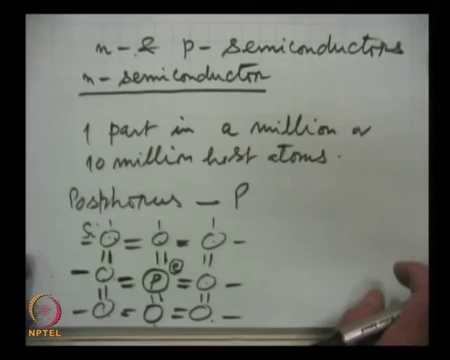 n- & p- semiconductors
n- semiconductor
1 part in a million or
10 million host atoms.
Posphorus - P
Si
e
P
NPTEL